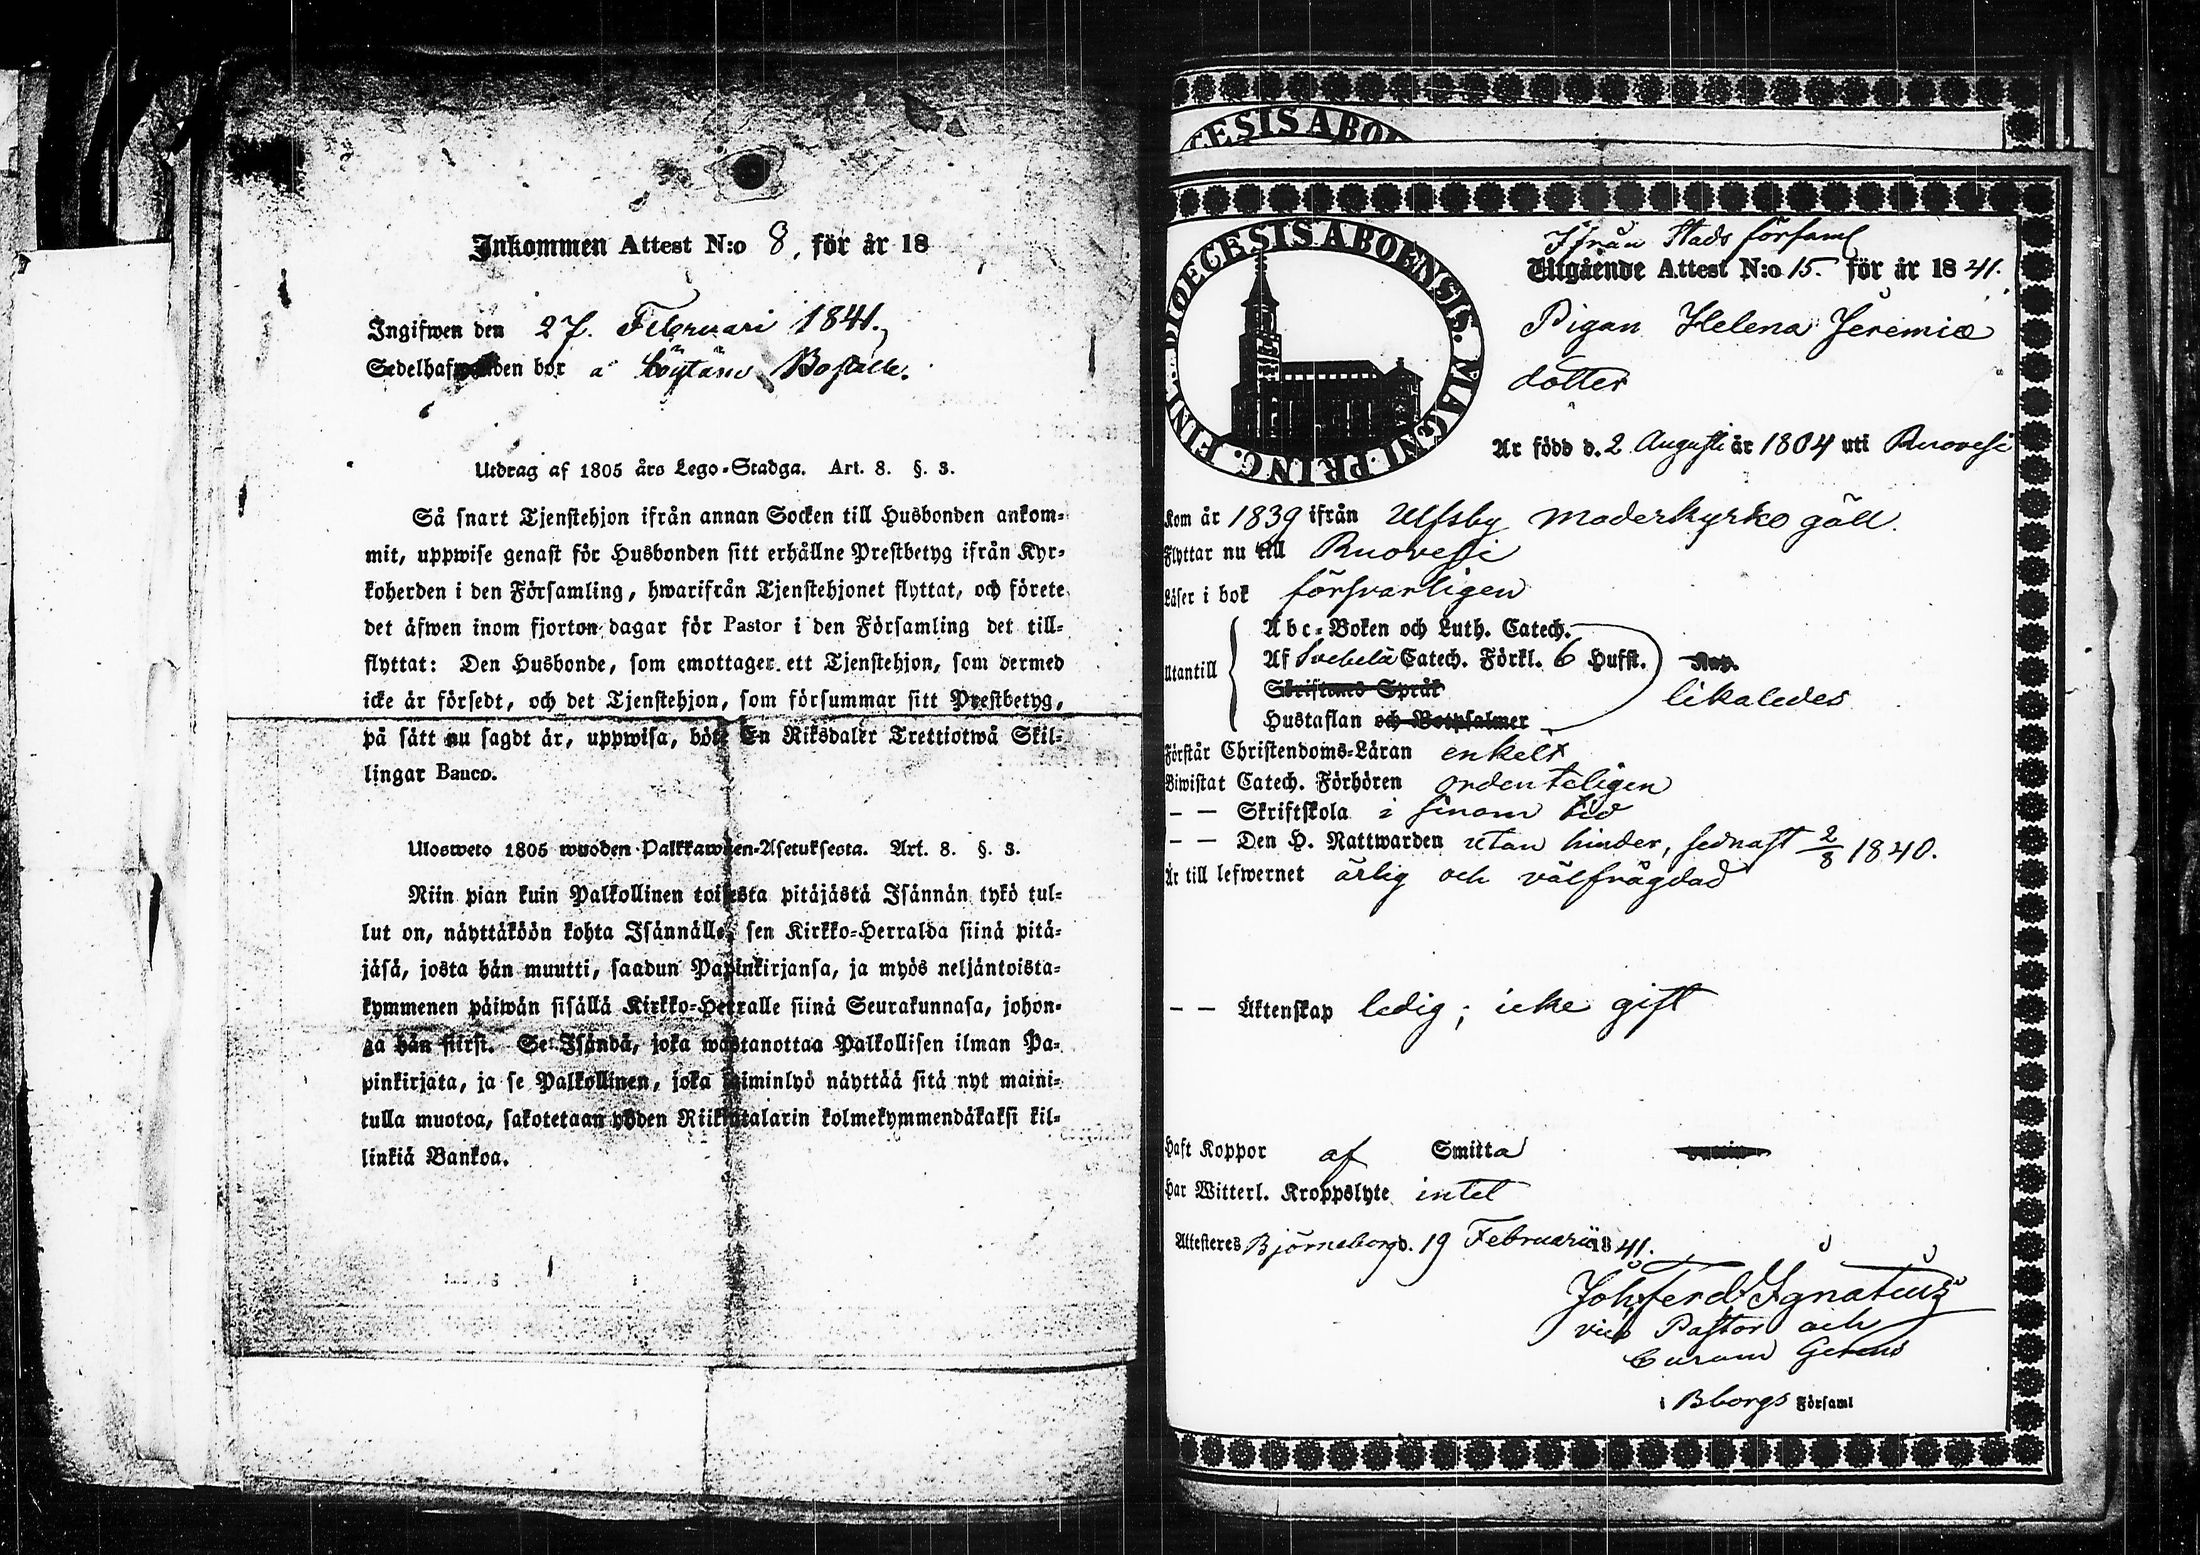 Inkommen Attest N:o 8, för år 18
Ingifwen den 27. Februari 1841.
Sedelhafwanden bor å Löytäne Boställe.
Utdrag af 1805 års Lego-Stadga. Art. 8. §. 3.
Så snart Tjenstehjon ifrån annan Socken till Husbonden ankom-
mit, uppwise genast för Husbonden sitt erhållne Prestbetyg ifrån Kyr-
koherden i den Församling, hwarifrån Tjenstehjonet flyttat, och förete
det äfwen inom fjorton dagar för Pastor i den Församling det till-
flyttat: Den Husbonde, som emottager ett Tjenstehjon, som dermed
icke är försedt, och det Tjenstehjon, som försummar sitt Prestbetyg,
på sätt nu sagdt är, uppwisa, böte En Riksdaler Trettiotwå Skil-
lingar Banco.
Ulosweto 1805 wuoden Palkkawäen-Asetuksesta. Art. 8. §. 3.
Niin pian kuin Palkollinen toisesta pitäjästä Isännän tykö tul-
lut on, näyttäköön kohta Isännälle, sen Kirkko-Herralda siinä pitä-
jäsä, josta hän muutti, saadun Papinkirjansa, ja myös neljäntoista-
kymmenen päiwän sisällä Kirkko-Herralle siinä Seurakunnasa, johon-
ga hän siirsi. Se Isändä, joka wastanottaa Palkollisen ilman Pa-
pinkirjata, ja se Palkollinen, joka laiminlyö näyttää sitä nyt maini-
tulla muotoa, sakotetaan yhden Riikintalarin kolmekymmendäkaksi kil-
linkiä Bankoa.
CESIS ABO
DIOECESIS ABOENSIS. MAGNI. PRINC. FINL.
Ifrån Stads församl
Utgående Attest N:o 15. för år 1841.
Pigan Helena Jeremiæ
dotter
Är född d. 2 Augusti år 1804 uti Ruovesi
Kom år 1839 ifrån Ulfsby moderkyrko gäll.
Flyttar nu till Ruovesi
Läser i bok försvarligen
Utantill
Abc-Boken och Luth. Catech.
Af Svebelii Catech. Förkl. 6 Hufst.
Skriftens Språk
Hustaflan och Botpsalmer
likaledes
Förstår Christendoms-Läran enkelt
Biwistat Catech. Förhören ordenteligen
– – Skriftskola i sinom tid
– – Den H. Nattwarden utan hinder, sednast 2/8 1840.
Är till lefwernet ärlig och välfrägdad
– – Äktenskap ledig; icke gift
Haft Koppor af Smitta
Har Witterl. Kroppslyte intet
Attesteres Björneborg d. 19 Februarii 1841.
Joh Ferd Ignatius
vice Pastor och
Curam Gerens
i Bborgs Församl